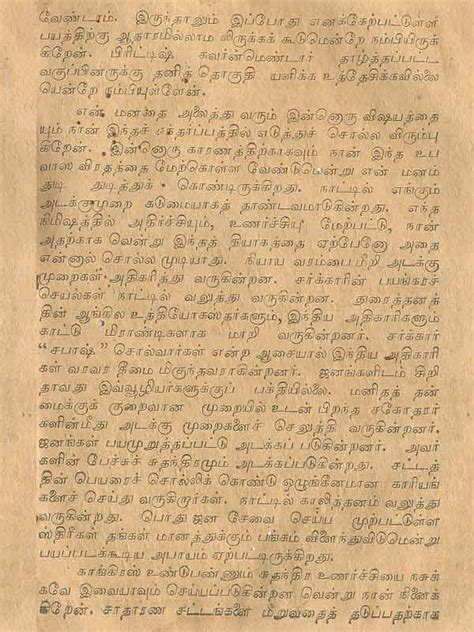 வேண்டாம். இருந்தாலும் இப்போது எனக்கேற்பட்டுள்ள
பயத்திற்கு ஆதாரமில்லாம லிருக்கக் கூடுமென்றே நம்பியிருக்
கிறேன். பிரிட்டிஷ் கவர்ன்மெண்டார் தாழ்த்தப்பட்ட
வகுப்பினருக்கு தனித் தொகுதி யளிக்க உத்தேசிக்கவில்லை
யென்றே நம்பியுள்ளேன்.
என் மனதை அலைத்து வரும் இன்னொரு விஷயத்தை
யும் நான் இந்தச் சந்தர்ப்பத்தில் எடுத்துச் சொல்ல விரும்பு
கிறேன். இன்னொரு காரணத்திற்காகவும் நான் இந்த உப
வாஸ விரதத்தை மேற்கொள்ள வேண்டுமென்று என் மனம்
துடி துடித்துக் கொண்டிருக்கிறது. நாட்டில் எங்கும்
அடக்குமுறை கடுமையாகத் தாண்டவமாடுகின்றது. எந்த
நிமிஷத்தில் அதிர்ச்சியும், உணர்ச்சியு மேற்பட்டு, நான்
அதற்காக வென்று இந்தத் தியாகத்தை ஏற்பேனோ அதை
என்னால் சொல்ல முடியாது. நியாய வரம்பை மிறி அடக்கு
முறைகள் அதிகரித்து வருகின்றன. சர்க்காரின் பயங்கரச்
செயல்கள் நாட்டில் வலுத்து வருகின்றன. துரைத்தனத்
தின் ஆங்கில உத்தியோகஸ்தர்களும், இந்திய அதிகாரிகளும்
காட்டு மிராண்டிகளாக மாறி வருகின்றனர். சர்க்கார்
"சபாஷ்" சொல்வார்கள் என்ற ஆசையால் இந்திய அதிகாரி
கள் வரவர திமை மிகுந்தவராகின்றனர். ஜனங்களிடம் சிறி
தாவது இவ்வூழியர்களுக்குப் பக்தியில்லை. மனிதத் தன்
மைக்குக் குறைவான முறையில் உடன் பிறந்த சகோதரர்
களின்மீது அடக்கு முறைகளைச் செலுத்தி வருகின்றனர்.
ஜனங்கள் பயமுறுத்தப்பட்டு அடக்கப் படுகின்றனர். அவர்
களின் பேச்சுச் சுதந்திரமும் அடக்கப்படுகின்றது. சட்டத்
தின் பெயரைச் சொல்லிக் கொண்டு ஒழுங்கீனமான காரியங்
களைச் செய்து வருகிறார்கள். நாட்டில் காலித்தனம் வலுத்து
வருகின்றது. பொது ஜன சேவை செய்ய முற்பட்டுள்ள
ஸ்திரீகள் தங்கள் மானத்துக்கும் பங்கம் விளைந்துவிடுமென்று
பயப்படக்கூடிய அபாயம் ஏற்பட்டிருக்கிறது.
காங்கிரஸ் உண்டுபண்ணும் சுதந்திர உணர்ச்சியை நசுக்
கவே இவையாவும் செய்யப்படுகின்றன வென்று நான் நினைக்
கிறேன். சாதாரண சட்டங்களை மீறுவதைத் தடுப்பதற்காக